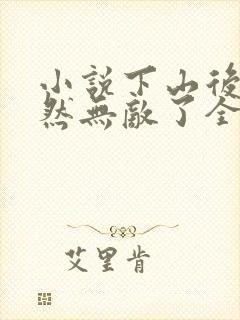 小說下山後
然無敵了全
艾里肯